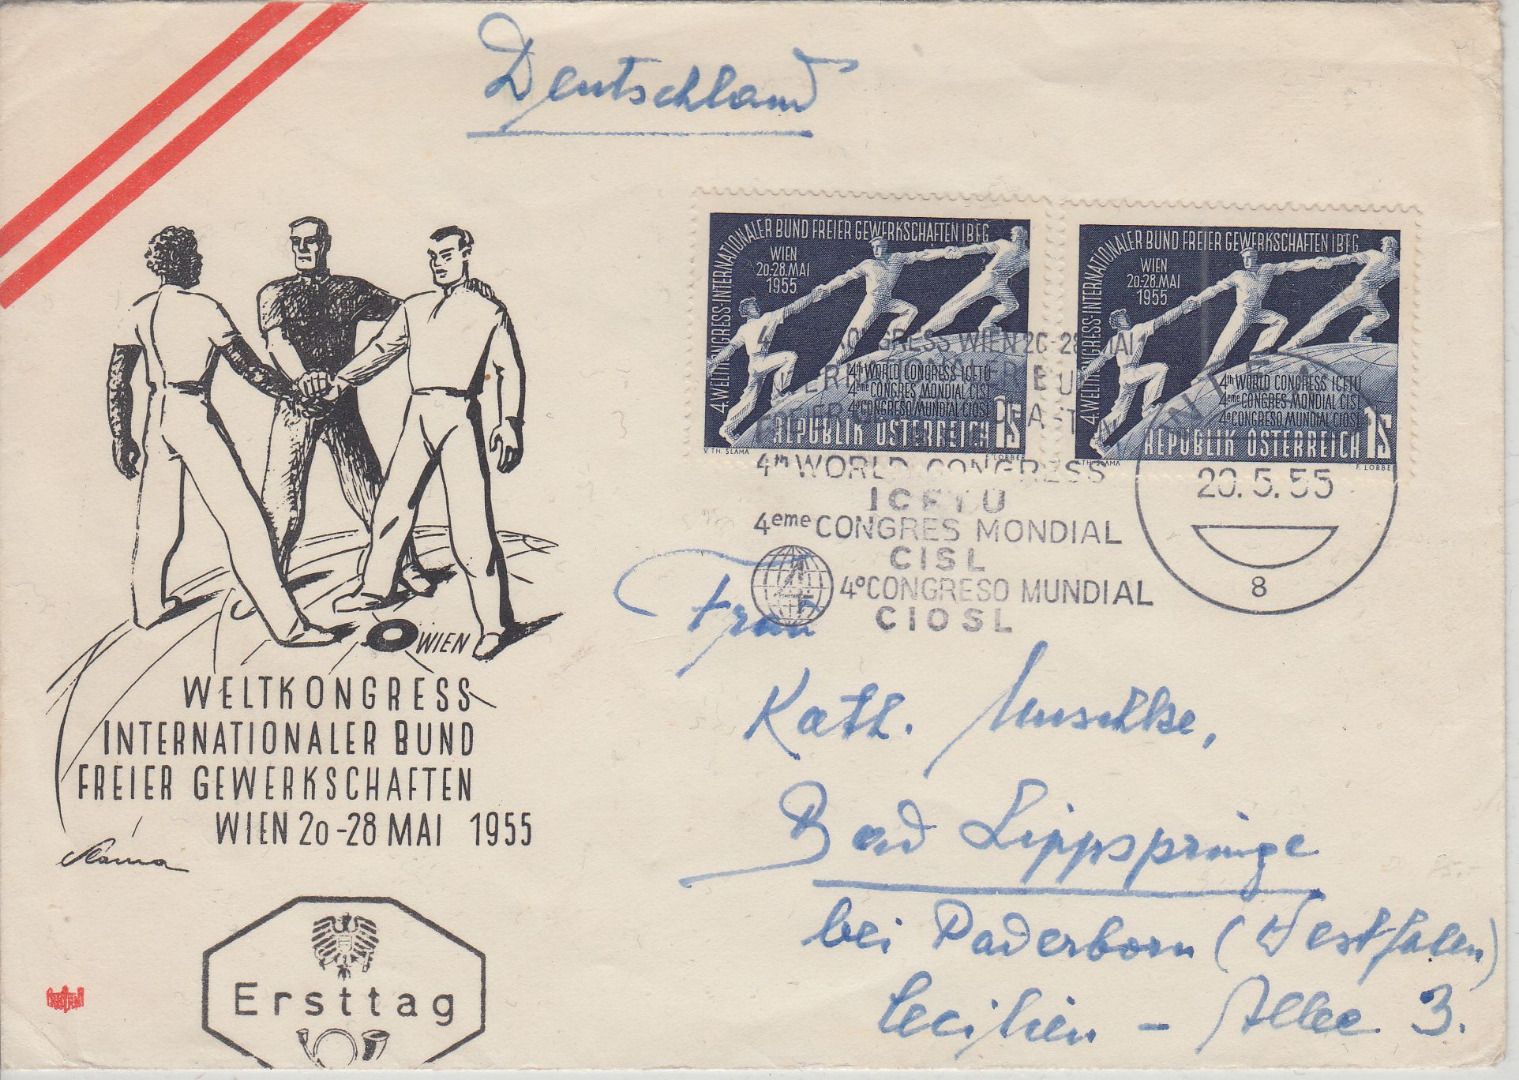 Deutschland
4. WELTKONGRESS·INTERNATIONALER BUND FREIER GEWERKSCHAFTEN IBFG
WIEN
20-28.MAI
1955
4th WORLD CONGRESS ICFTU
4eme CONGRES MONDIAL CISL
4º CONGRESO MUNDIAL CIOSL
REPUBLIK ÖSTERREICH 1S
V. TH. SLAMA
F. LORBER
4. WELTKONGRESS·INTERNATIONALER BUND FREIER GEWERKSCHAFTEN IBFG
WIEN
20-28.MAI
1955
4th WORLD CONGRESS ICFTU
4eme CONGRES MONDIAL CISL
4º CONGRESO MUNDIAL CIOSL
REPUBLIK ÖSTERREICH 1S
TH. SLAMA
F. LORBER
CONGRESS WIEN 20-28 MAI
4th WORLD CONGRESS
ICFTU
4eme CONGRES MONDIAL
CISL
4º CONGRESO MUNDIAL
CIOSL
20.5.55
8
WIEN
WELTKONGRESS
INTERNATIONALER BUND
FREIER GEWERKSCHAFTEN
WIEN 20-28 MAI 1955
Slama
Ersttag
Frau
Kath. Muschke,
Bad Lippspringe
bei Paderborn (Westfalen)
Cecilien - Allee 3.